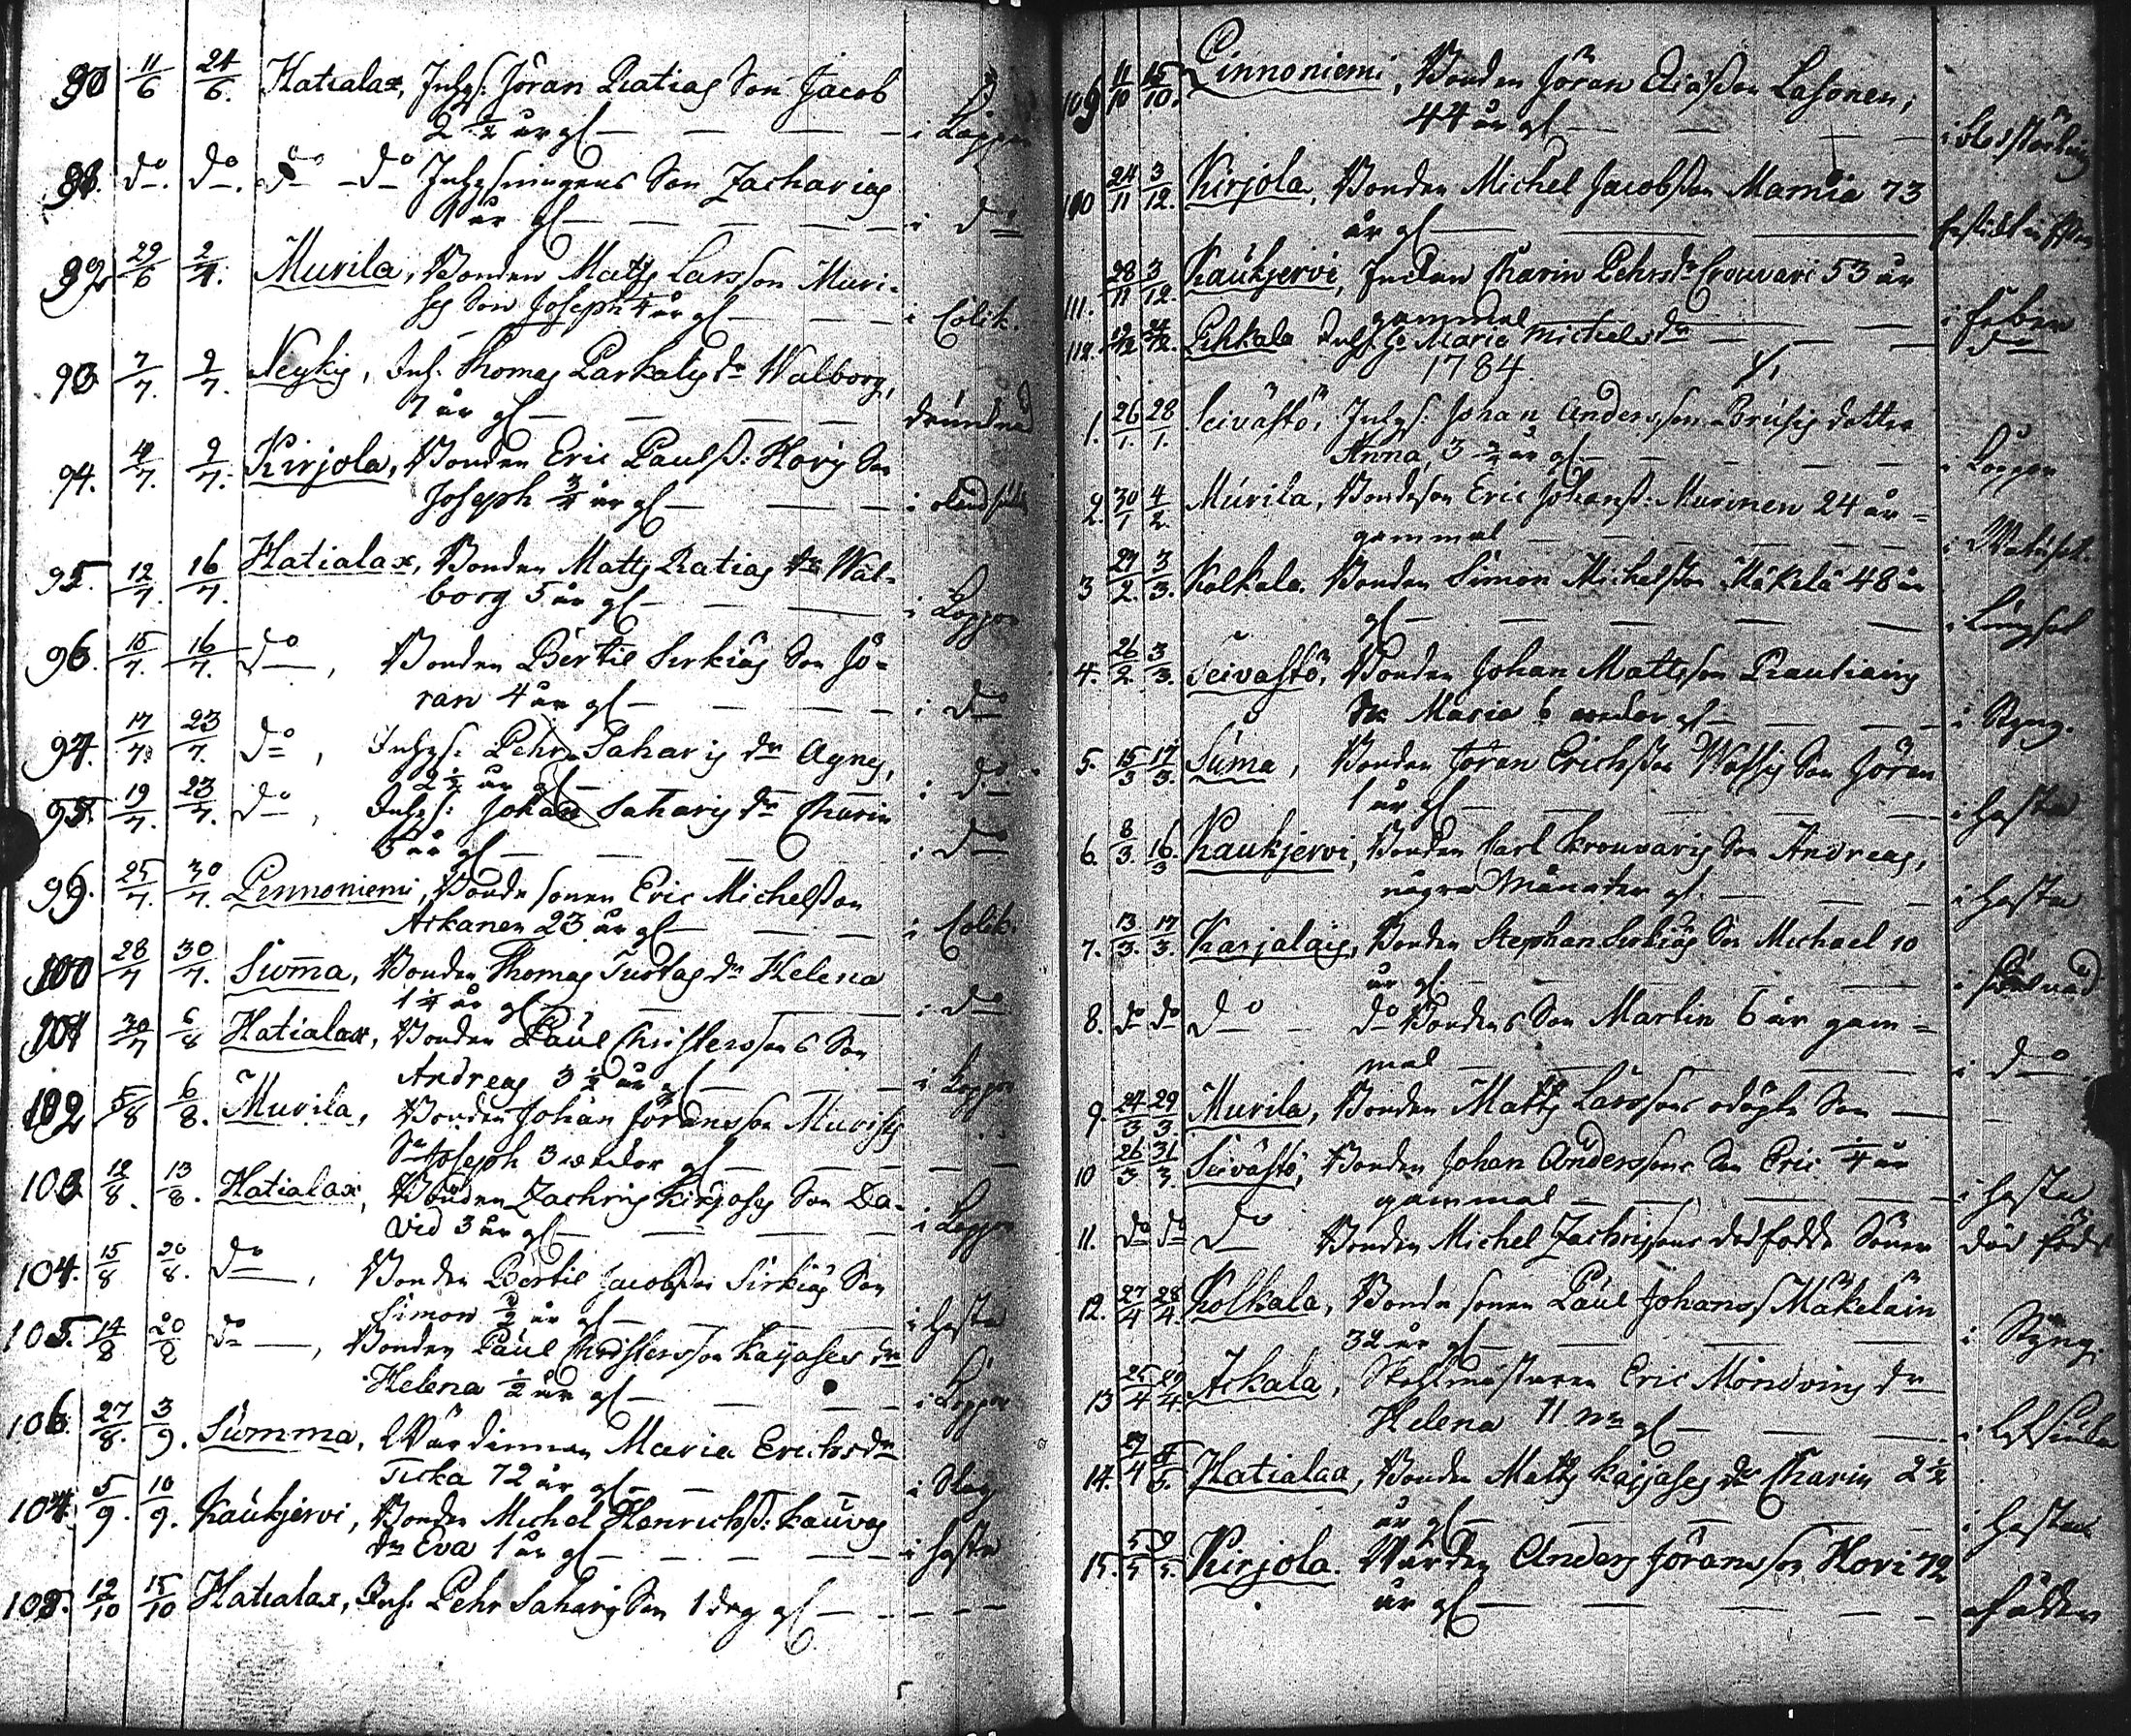 90 11/6 24/6. Hatialax, Inhys: Jöran Ratias Son Jacob
2 1/2 år gl — — — i Koppor
91. do. do. do - do Inhysningens Son Zacharias
1 år gl — — — i do
92 29/6 2/7. Murila, Bonden Matts Larsson Muri-
ses Son Joseph 4 år gl — — i Colik.
93 7/7. 9/7. Neykis, Inh. Thomas Parkatis dr Walborg,
7 år gl — — — drunknad
94. 4/7. 9/7. Kirjola, Bonden Eric Paulss: Hovis Son
Joseph 3/4 år gl — — i
95. 12/7. 16/7. Hatialax, Bonden Matts Ratias dr Wal-
borg 5 år gl — — i Koppor
96. 15/7. 16/7. do, Bonden Bertil Sirkiäs Son Jö-
ran 4 år gl — — — i do
97. 17/7. 23/7. do, Inhys: Pehr Saharis dr Agnes,
2 1/2 år gl — — i do
95. 19/7. 23/7. do, Inhys: Johan Saharis dr Charin
5 år gl — — — i do
99. 25/7. 30/7. Pinnoniemi, Bonde sonen Eric Michelsson
Askanen 23 år gl — — i Colik.
100 28/7 30/7. Suma, Bonden Thomas Tustas dr Helena
1 1/4 år gl — — — i do
101 30/7 6/8 Hatialax, Bonden Paul Christerssons Son
Andreas 3 1/2 år gl — — i Koppor
102 5/8 6/8. Murila, Bonden Johan Jöransson Murises
Son Joseph 3 wekor gl — — —
103 12/8. 13/8. Hatialax, Bonden Zachris Kirjoses Son Da-
vid 3 år gl — — — i Koppor
104. 15/8 20/8. do, Bonden Bertil Jacobsson Sirkiäs Son
Simon 1/2 år gl — — i hosta
105. 14/8 20/8 do —, Bonden Paul Christersson Kaijases dr
Helena 1/2 år gl — — i Koppor
106. 27/8. 3/9. Summa, Wärdinnan Maria Erichsdr
Ticka 72 år gl — — i Slag
107. 5/9. 10/9. Kaukjerwi, Bonden Michel Henrichss: Kauvas
dr Eva 1 år gl — — — i hosta
108. 12/10 15/10 Hatialax, Inh. Pehr Saharis Son 1 dag gl — — —
109 11/10 15/10. Pinnoniemi, Bonden Jöran Eliasson Lasonen;
44 år gl — — —
110 24/11 3/12. Kirjola, Bonden Michel Jacobsson Mamia 73
år gl — — —
111. 28/11 3/12. Kaukjervi, Enckan Charin Pehrsdr Crouvari 53 år
gammal — — — i feber
112. 12/12 24/12. Pihkala Maria Michelsdr — — do
1784.
1. 26/1. 28/1. Seivästö, Inhys: Johan Andersson Brusis dotter
Anna 3 3/4 år gl — — i Koppor
2. 30/1 4/2. Murila, Bondeson Eric Johanss: Murinen 24 år=
gammal — — — i
3 29/2. 3/3. Kolkala. Bonden Simon Michelsson Mäkelä 48 år
gl — — — — i Lungsot
4. 26/2. 3/3. Seivästö, Bonden Johan Mattsson Rautiains
dr Maria 6 wekor gl — — i Styng.
5. 15/3 17/3. Suma, Bonden Jöran Erichsson Wassis Son Jöran
1 år gl — — — i hosta
6. 8/3 16/3 Kaukjerwi, Bonden Carl Krouvaris Son Andreas,
några Månader gl. — — i hosta
7. 13/3. 17/3. Karjalais, Bonden Stephan Sirkiäs Son Michael 10
år gl. — — — i
8. do do do do Bondens Son Martin 6 år gam=
mal — — — i do.
9. 24/3 29/3. Murila, Bonden Matts Larssons odöpte Son —
10 26/3 31/3. Seivästö, Bonden Johan Anderssons Son Eric 1/4 år
gammal — — — i hosta
11. do do do Bonden Michel Zachrissons dödfödde Sonen död född
12. 27/4 28/4. Kolkala, Bonde sonen Paul Johanss Mäkeläin
32 år gl — — — i Styng.
13 25/4 29/4. Askala, Eric Mondvins dr
Helena 11 gl — — — i
14. 29/4 Hatialax, Bonden Matts Kaijases dr Charin 2 1/2
år gl — — — i hosta
15. 5/5 9/5. Kirjola. Wärden Anders Jöransson Hovi 72
år gl — — —